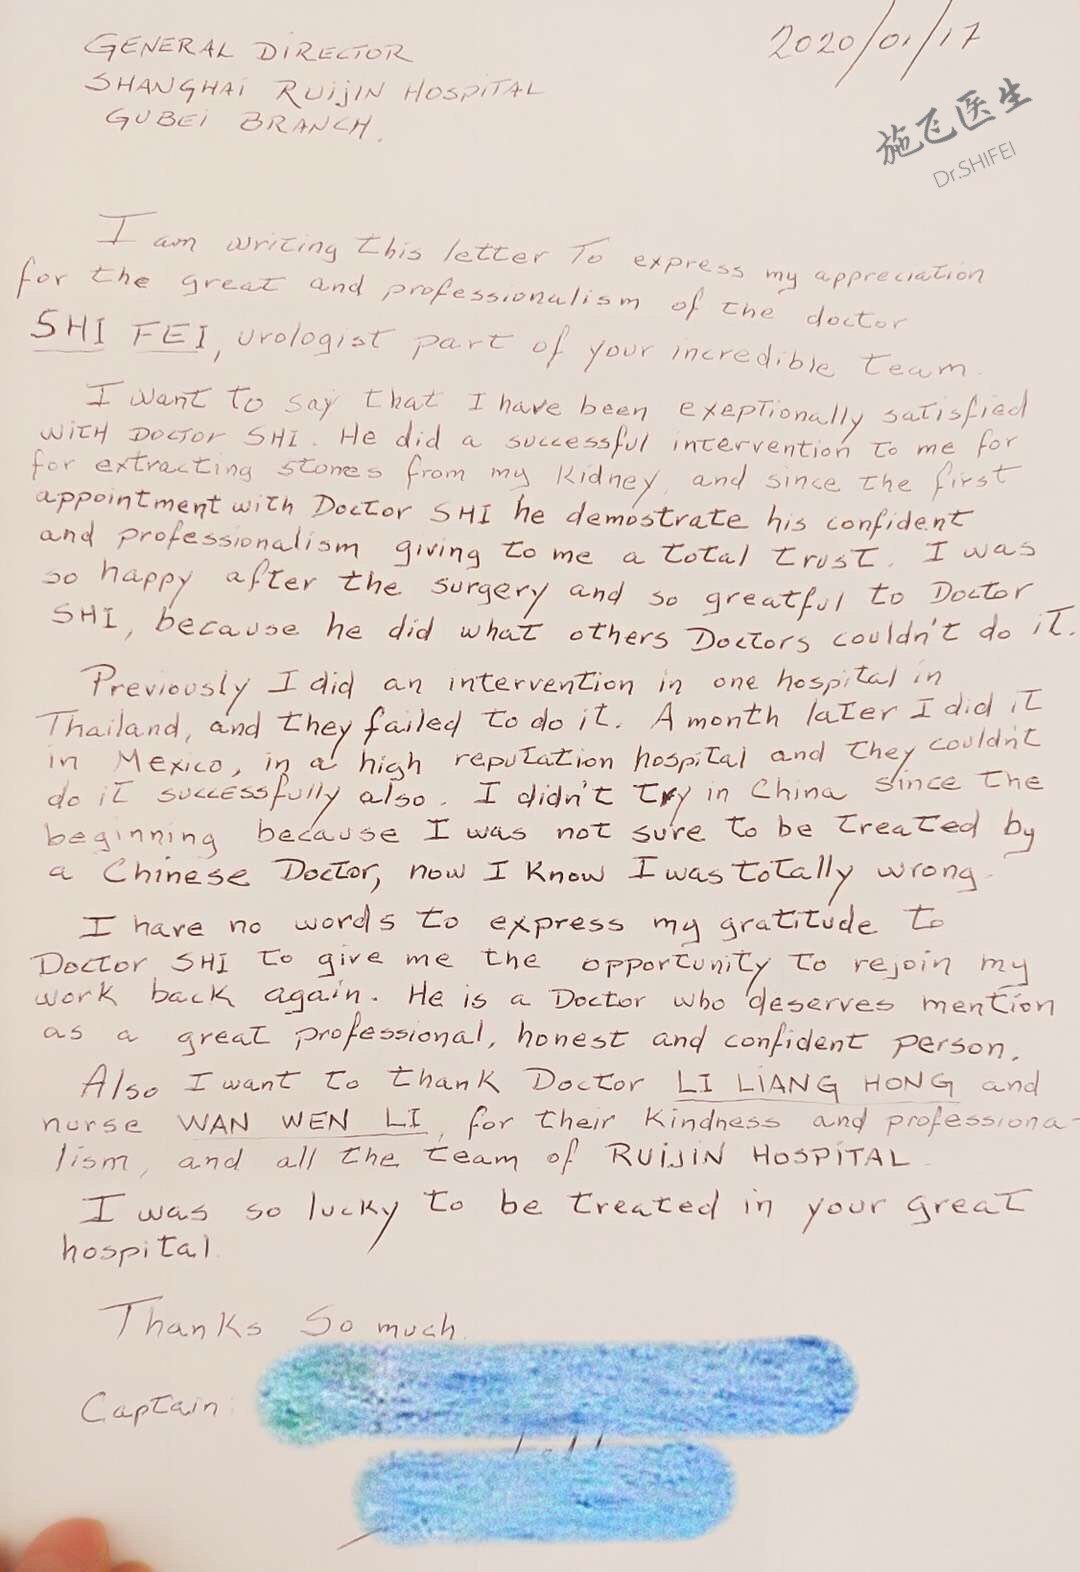 GENERAL DIRECTOR
SHANGHAI RUIJIN HOSPITAL
GUBEI BRANCH.
2020/01/17
施飞医生
Dr.SHIFEI
I am writing this letter To express my appreciation
for the great and professionalism of the doctor
SHI FEI, urologist part of your incredible team.
I want to say that I have been exeptionally satisfied
WITH DOCTOR SHI. He did a successful intervention to me for
for extracting stones from my Kidney, and since the first
appointment with Doctor SHI he demostrate his confident
and professionalism giving to me a total trust. I was
so happy after the surgery and so greatful to Doctor
SHI, because he did what others Doctors couldn't do it.
Previously I did an intervention in one hospital in
Thailand, and they failed to do it. A month later I did it
in Mexico, in a high reputation hospital and they couldn't
do it successfully also. I didn't try in China since the
beginning because I was not sure to be treated by
a Chinese Doctor, now I know I was totally wrong.
I have no words to express my gratitude to
Doctor SHI to give me the opportunity to rejoin my
work back again. He is a Doctor who deserves mention
as a great professional, honest and confident person.
Also I want to thank Doctor LI LIANG HONG and
nurse WAN WEN LI, for their Kindness and professiona-
lism, and all the team of RUIJIN HOSPITAL.
I was so lucky to be treated in your great
hospital.
Thanks So much.
Captain: